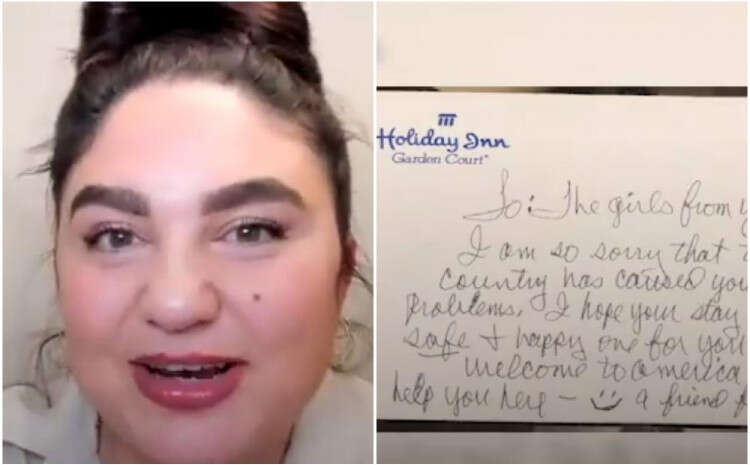 Holiday Inn
Garden Court
To: The girls from
I am so sorry that
country has caused you
problems. I hope your stay
safe + happy one for you
Welcome to America
help you here — a friend